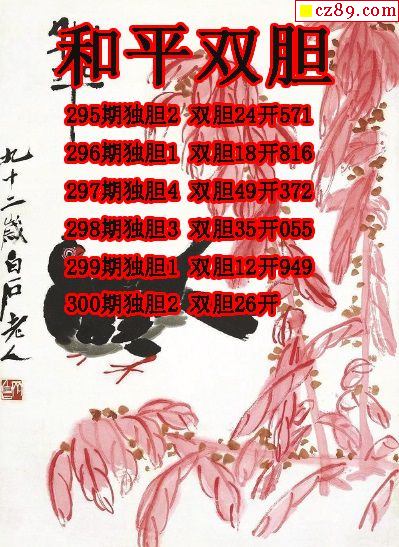 cz89.com
和平双胆
295期独胆2 双胆24开571
296期独胆1 双胆18开816
297期独胆4 双胆49开372
298期独胆3 双胆35开055
299期独胆1 双胆12开949
300期独胆2 双胆26开
九十二岁白石老人